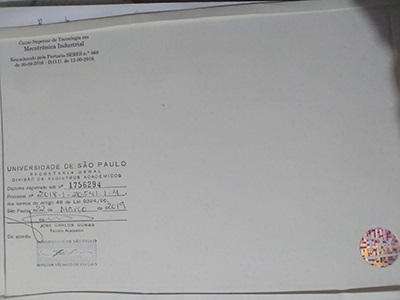 Curso Superior de Tecnologia em
Mecatrônica Industrial
Reconhecido pela Portaria SERES n.º 469
de 09-09-2016 - D.O.U. de 12-09-2016
UNIVERSIDADE DE SÃO PAULO
SECRETARIA GERAL
DIVISÃO DE REGISTROS ACADÊMICOS
Diploma registrado sob nº 1756294
Processo nº 2018.1.20541.1.4
dos termos do Artigo 48 da Lei 9394/96.
São Paulo, 22 de MARÇO de 2019
JOSÉ CARLOS
Técnico Acadêmico
De acordo
UNIVERSIDADE DE SÃO PAULO